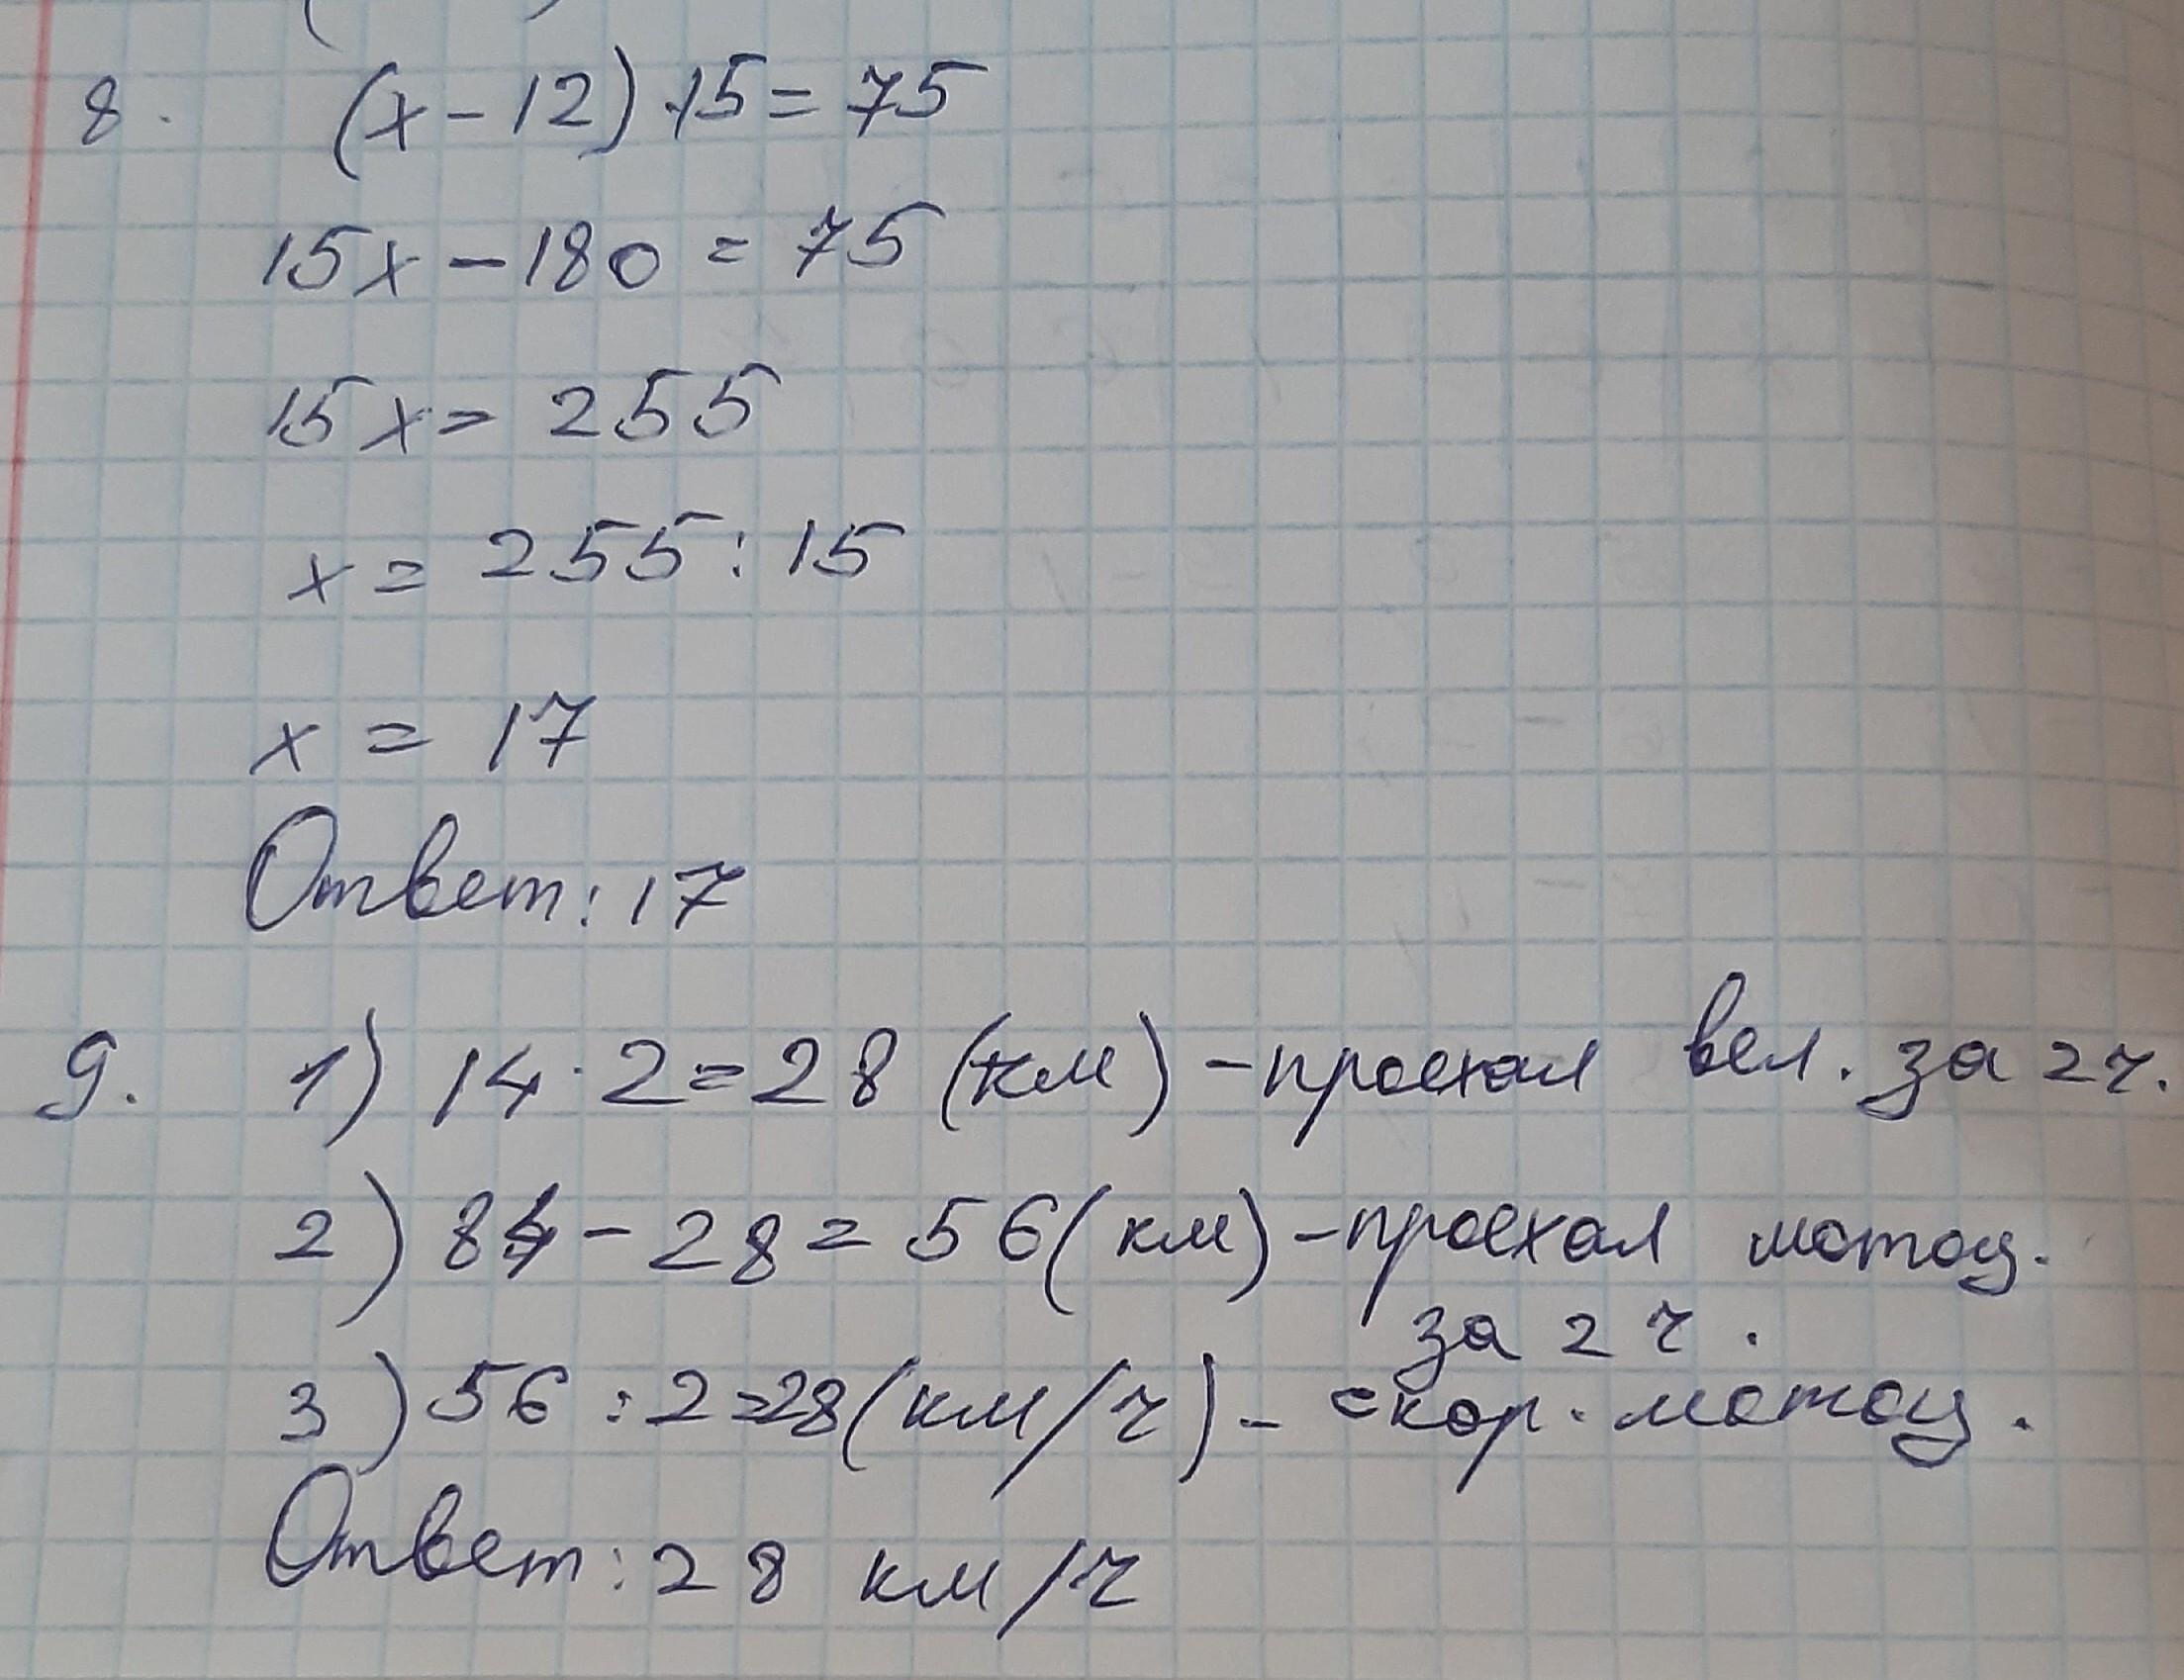 8. (x-12)·15=75
15x-180=75
15x=255
x=255:15
x=17
Ответ:17
9. 1) 14·2=28 (км)-проехал вел. за 2ч.
2) 84-28=56(км)-проехал мотоц.
за 2ч.
3) 56:2=28(км/ч)- скор. мотоц.
Ответ:28 км/ч